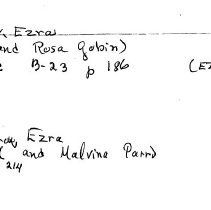 Ezra
and Rosa Gobin)
B-23 p 186 (Ez
Ezra
( and Malvina Parr)
214